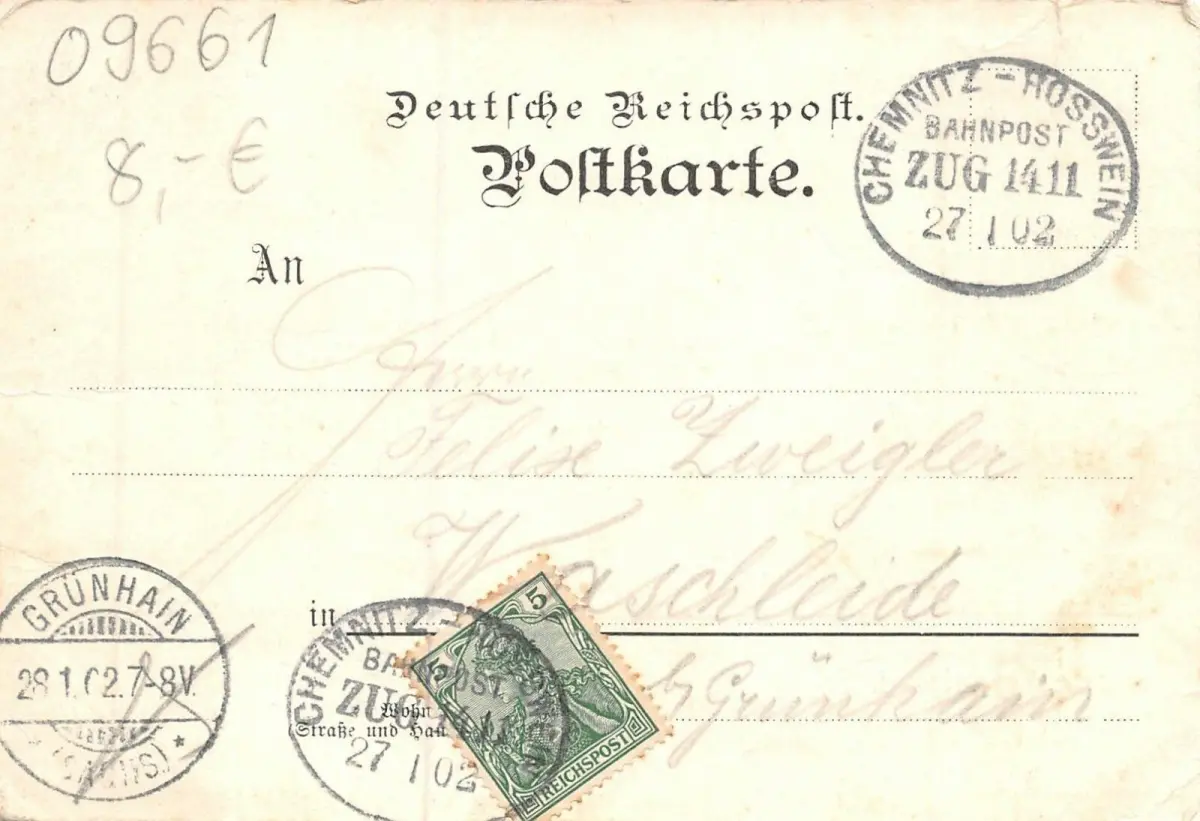 09661
8,- €
Deutsche Reichspost.
Postkarte.
CHEMNITZ - ROSSWEIN
BAHNPOST
ZUG 1411
27 1 02
An
Herrn
Felix Zweigler
Waschleide
in
b/ Grünhain
GRÜNHAIN
28.1.02.7-8V.
(SACHS.)
*
CHEMNITZ -
BAHNPOST
ZUG 1411
27 1 02
Wohn
(Straße und Hau
5
5
REICHSPOST